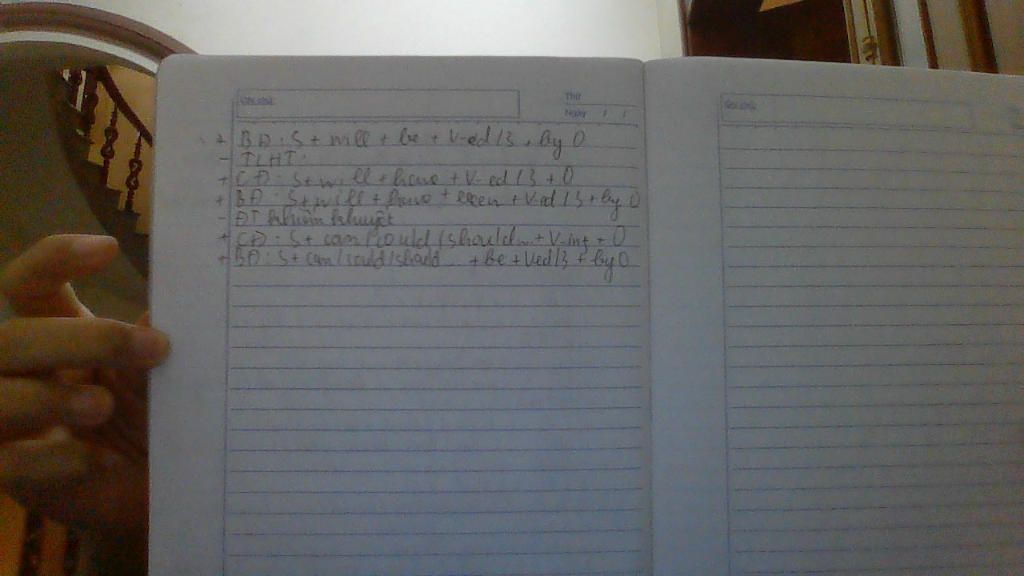 Thứ
Ngày / /
+ BĐ: S + will + be + V-ed/3 + by O
- TLHT:
+ CĐ: S + will + have + V-ed/3 + O
+ BĐ: S + will + have + been + V-ed/3 + by O
- ĐT khiếm khuyết
+ CĐ: S + can/could/should... + V-inf + O
+ BĐ: S + can/could/should... + be + Ved/3 + by O